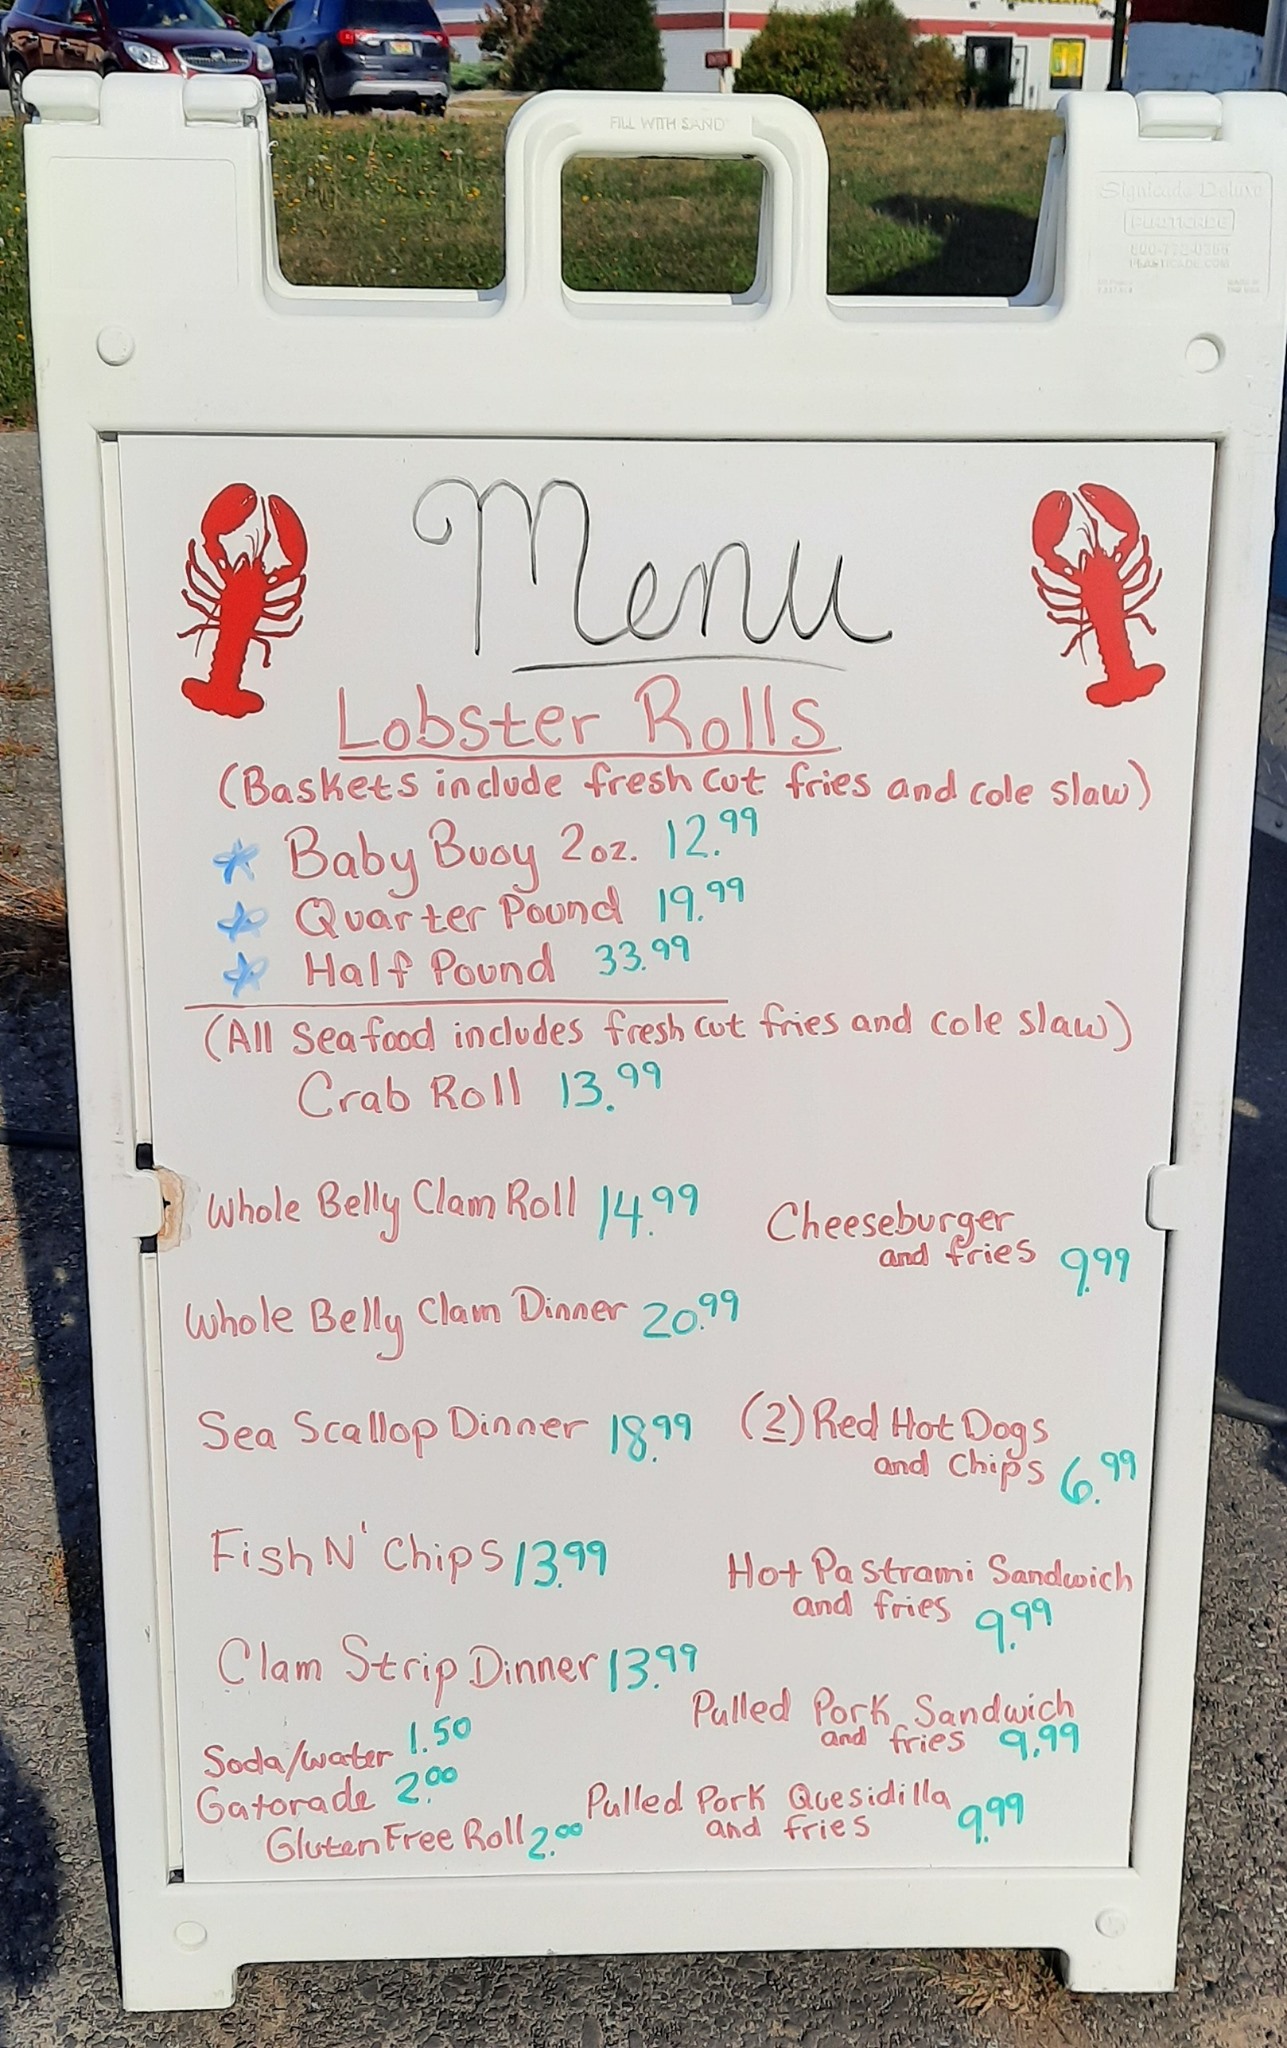 FILL WITH SAND
Signicade Deluxe
PLASTICADE
PLASTICADE.COM
Menu
Lobster Rolls
(Baskets include fresh cut fries and cole slaw)
* Baby Buoy 2oz. 12.99
* Quarter Pound 19.99
* Half Pound 33.99
(All Seafood includes fresh cut fries and cole slaw)
Crab Roll 13.99
Whole Belly Clam Roll 14.99
Whole Belly Clam Dinner 20.99
Sea Scallop Dinner 18.99
Fish N' Chips 13.99
Clam Strip Dinner 13.99
Soda/water 1.50
Gatorade 2.00
Gluten Free Roll 2.00
Cheeseburger
and fries 9.99
(2) Red Hot Dogs
and Chips 6.99
Hot Pastrami Sandwich
and fries 9.99
Pulled Pork Sandwich
and fries 9.99
Pulled Pork Quesidilla
and fries 9.99